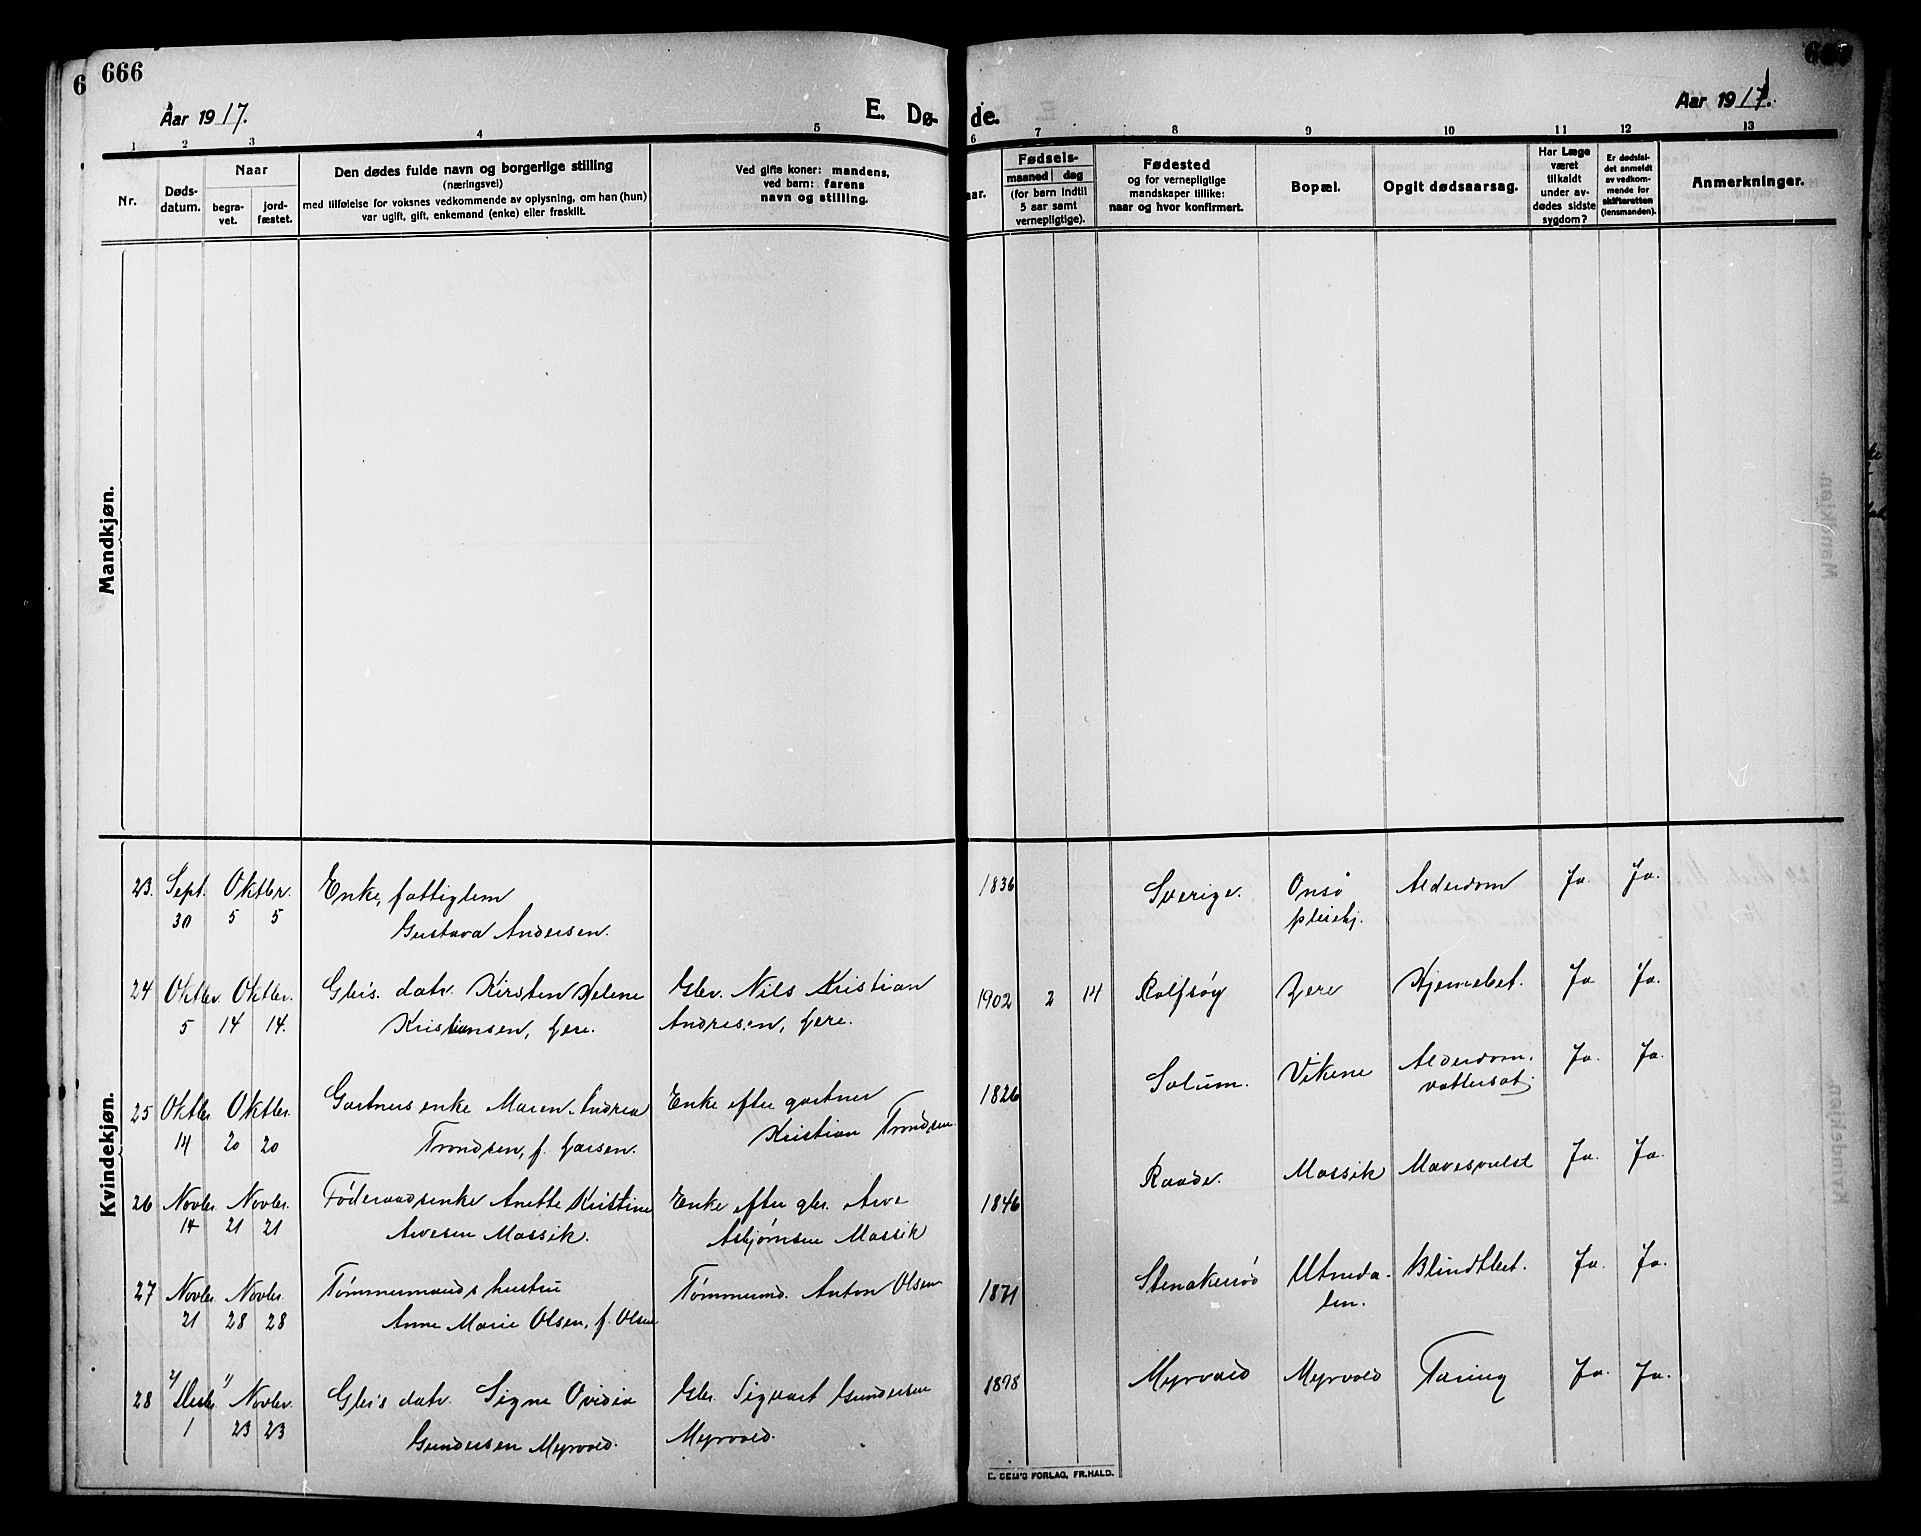 666
Aar 1917.
E. Dø-
de.
Aar 1917.
1 2 3 4 5 6 7 8 9 10 11 12 13
Nr.
Døds-
datum.
Naar
begra-
vet.
jord-
fæstet.
Den dødes fulde navn og borgerlige stilling
(næringsvei)
med tilføielse for voksnes vedkommende av oplysning, om han (hun)
var ugift, gift, enkemand (enke) eller fraskilt.
Ved gifte koner: mandens,
ved barn: farens
navn og stilling.
aar.
Fødsels-
maaned dag
(for barn indtil
5 aar samt
vernepligtige).
Fødested
og for vernepligtige
mandskaper tillike:
naar og hvor konfirmert.
Bopæl.
Opgit dødsaarsag.
Har Læge
været
tilkaldt
under av-
dødes sidste
sygdom?
Er dødsfal-
det anmeldt
av vedkom-
mende for
skifteretten
(lensmanden).
Anmerkninger.
Mandkjøn.
Kvindekjøn.
23. Sept. Oktbr. Enke, fattiglem 1836 Sverige. Onsø Alderdom Ja. Ja.
30 5 5 Gustava Andersen. pleiehj.
24 Oktbr. Oktbr. Gbr's. datr. Kirsten Helene Gbr. Nils Kristian 1902 2 14 Rolfsøy Lere Hjernebet. Ja Ja.
5 14 14. Kristiansen, Lere. Andresen, Lere.
25 Oktbr. Oktbr. Gartnersenke Maren Andrea Enke efter gartner 1826 Solum. Vikene Alderdom. Ja. Ja.
14 20 20 Trondsen, f. Larsen. Kristian Trondsen. vattersot
26 Novbr. Novbr. Føderaadsenke Anette Kristine Enke efter gbr. Arve 1846 Raade. Mossik Mavesvulst Ja. Ja.
14 21 21 Arvesen Mossik. Asbjørnsen Mossik
27 Novbr. Novbr. Tømmermands hustru Tømmermd. Anton Olsen 1871 Stenakerød Utneda- Blindtbet. Ja. Ja.
21 28 28 Anne Marie Olsen, f. Olsen len.
28 Novbr. Gbr's datr. Signe Ovidia Gbr. Sigvart Gundersen 1898 Myrvold Myrvold Tæring Ja. Ja.
1 23 23 Gundersen Myrvold. Myrvold.
E. SEM'S FORLAG, FR.HALD.